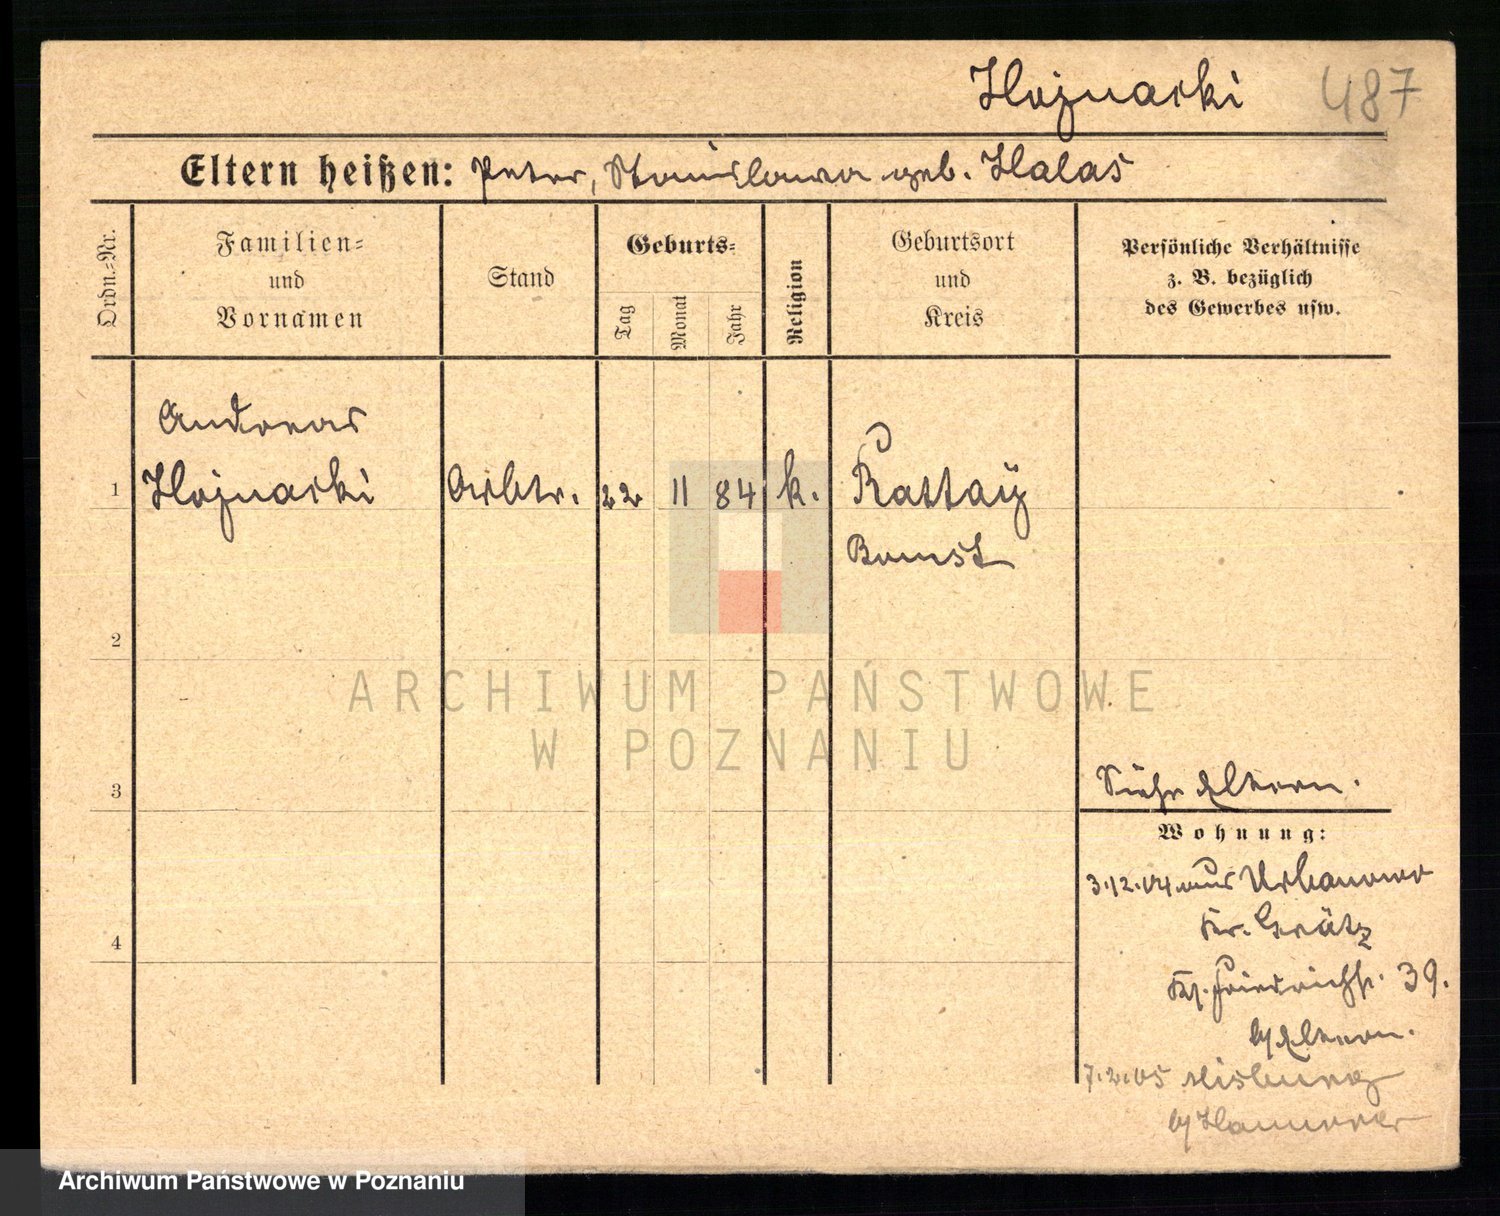 Hojnacki 487
Eltern heißen: Peter, Stanislawa geb. Halas
Ordn.-Nr.
Familien-
und
Vornamen
Stand
Geburts-
Tag
Monat
Jahr
Religion
Geburtsort
und
Kreis
Persönliche Verhältnisse
z. B. bezüglich
des Gewerbes usw.
Andreas
1 Hojnacki Arbtr. 22 11 84 k. Rattaÿ
Bomst
2
ARCHIWUM PAŃSTWOWE
W POZNANIU
3
Siehe Eltern.
Wohnung:
3.12.04 aus Urbanowo
4
Kr. Grätz
Kl. Friedrichstr. 39.
b/ Eltern.
7.2.05 Misburg
b/ Hannover
Archiwum Państwowe w Poznaniu